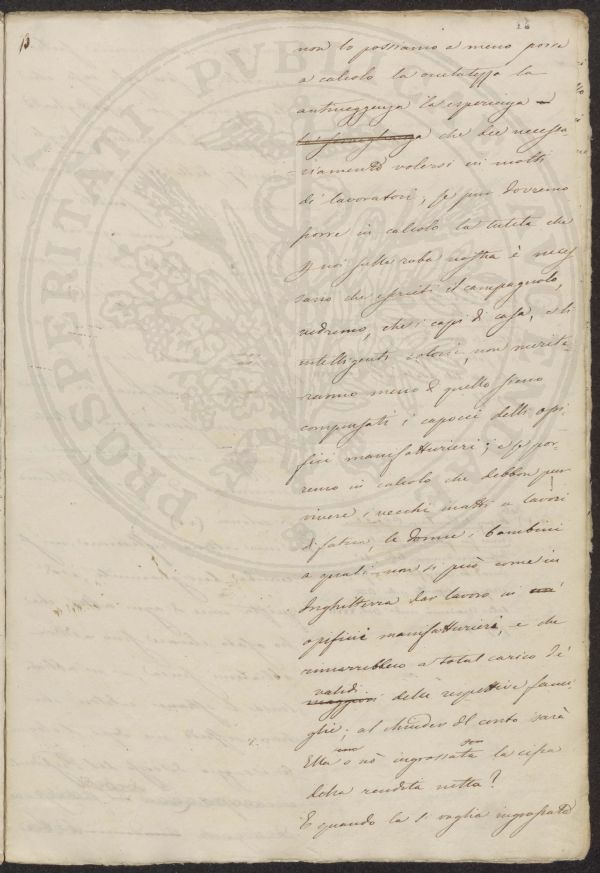 13
non lo possiamo a meno porre
a calcolo la oculatezza la
antiveggenza la esperienza
che dee necessa-
-riamente volersi in molti
de' lavoratori, se pur dovremo
porre in calcolo la tutela che
p noi sulla roba nostra è neces
sario che eserciti il campagnolo,
vedremo, che i cappi di casa, e li
intelligenti coloni, non merite-
ranno meno di quello sieno
compensati i capocci delli opi-
fici manifatturieri; e se por-
remo in calcolo che debbon pur
vivere i vecchi inatti a' lavori
di fatica, le donne i bambini
a quali non si può come in
Inghilterra dar lavoro in
opifici manifatturieri, e che
rimarrebbero a total carico de'
validi
maggiori delle respettive fami-
glie; al chiuder del conto sarà
Ella o nò ingrossata la cifra
della rendita netta?
E quando la si voglia ingrossata
PROSPERITATI PUBLICAE